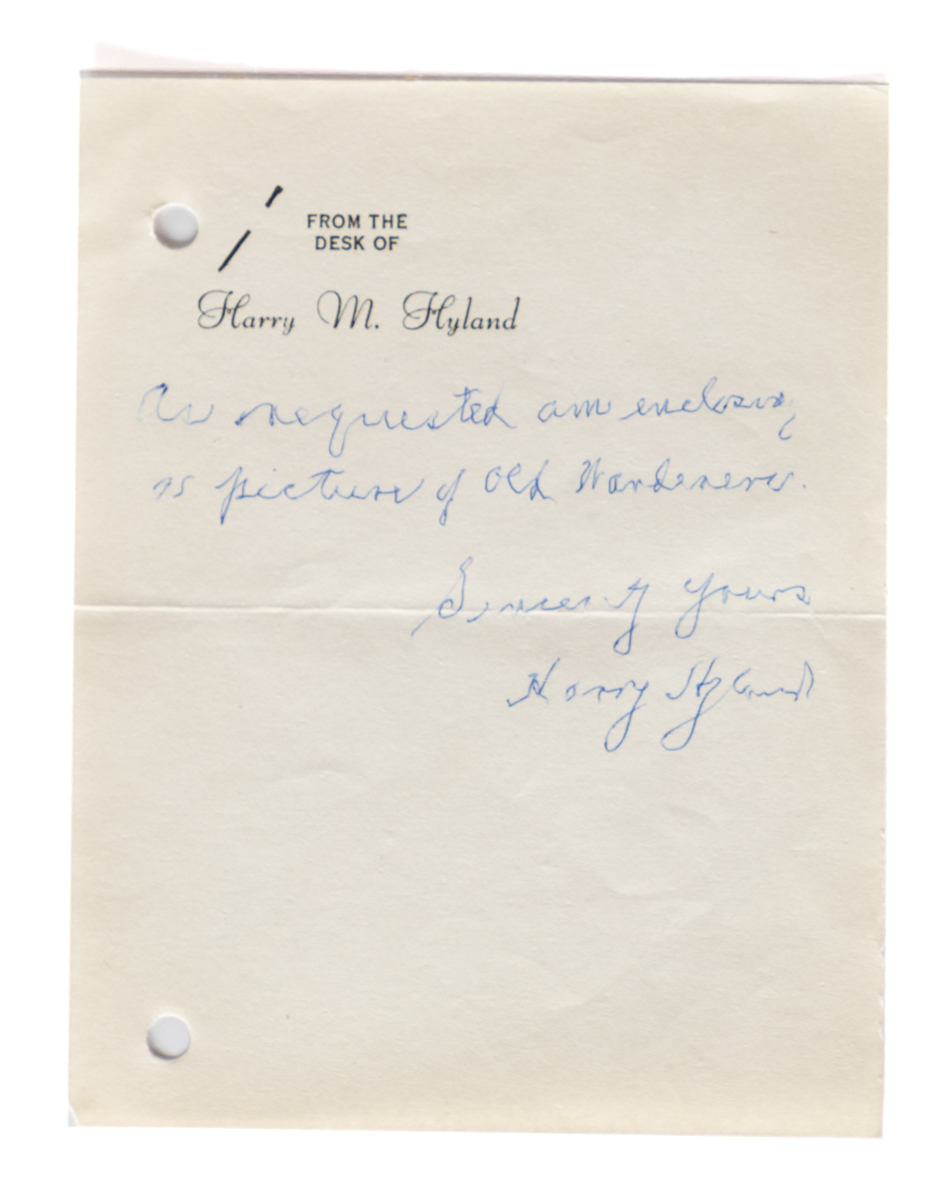 FROM THE
DESK OF
Harry M. Hyland
As requested am enclosing
picture of Old Wanderers.
Sincerely Yours
Harry Hyland